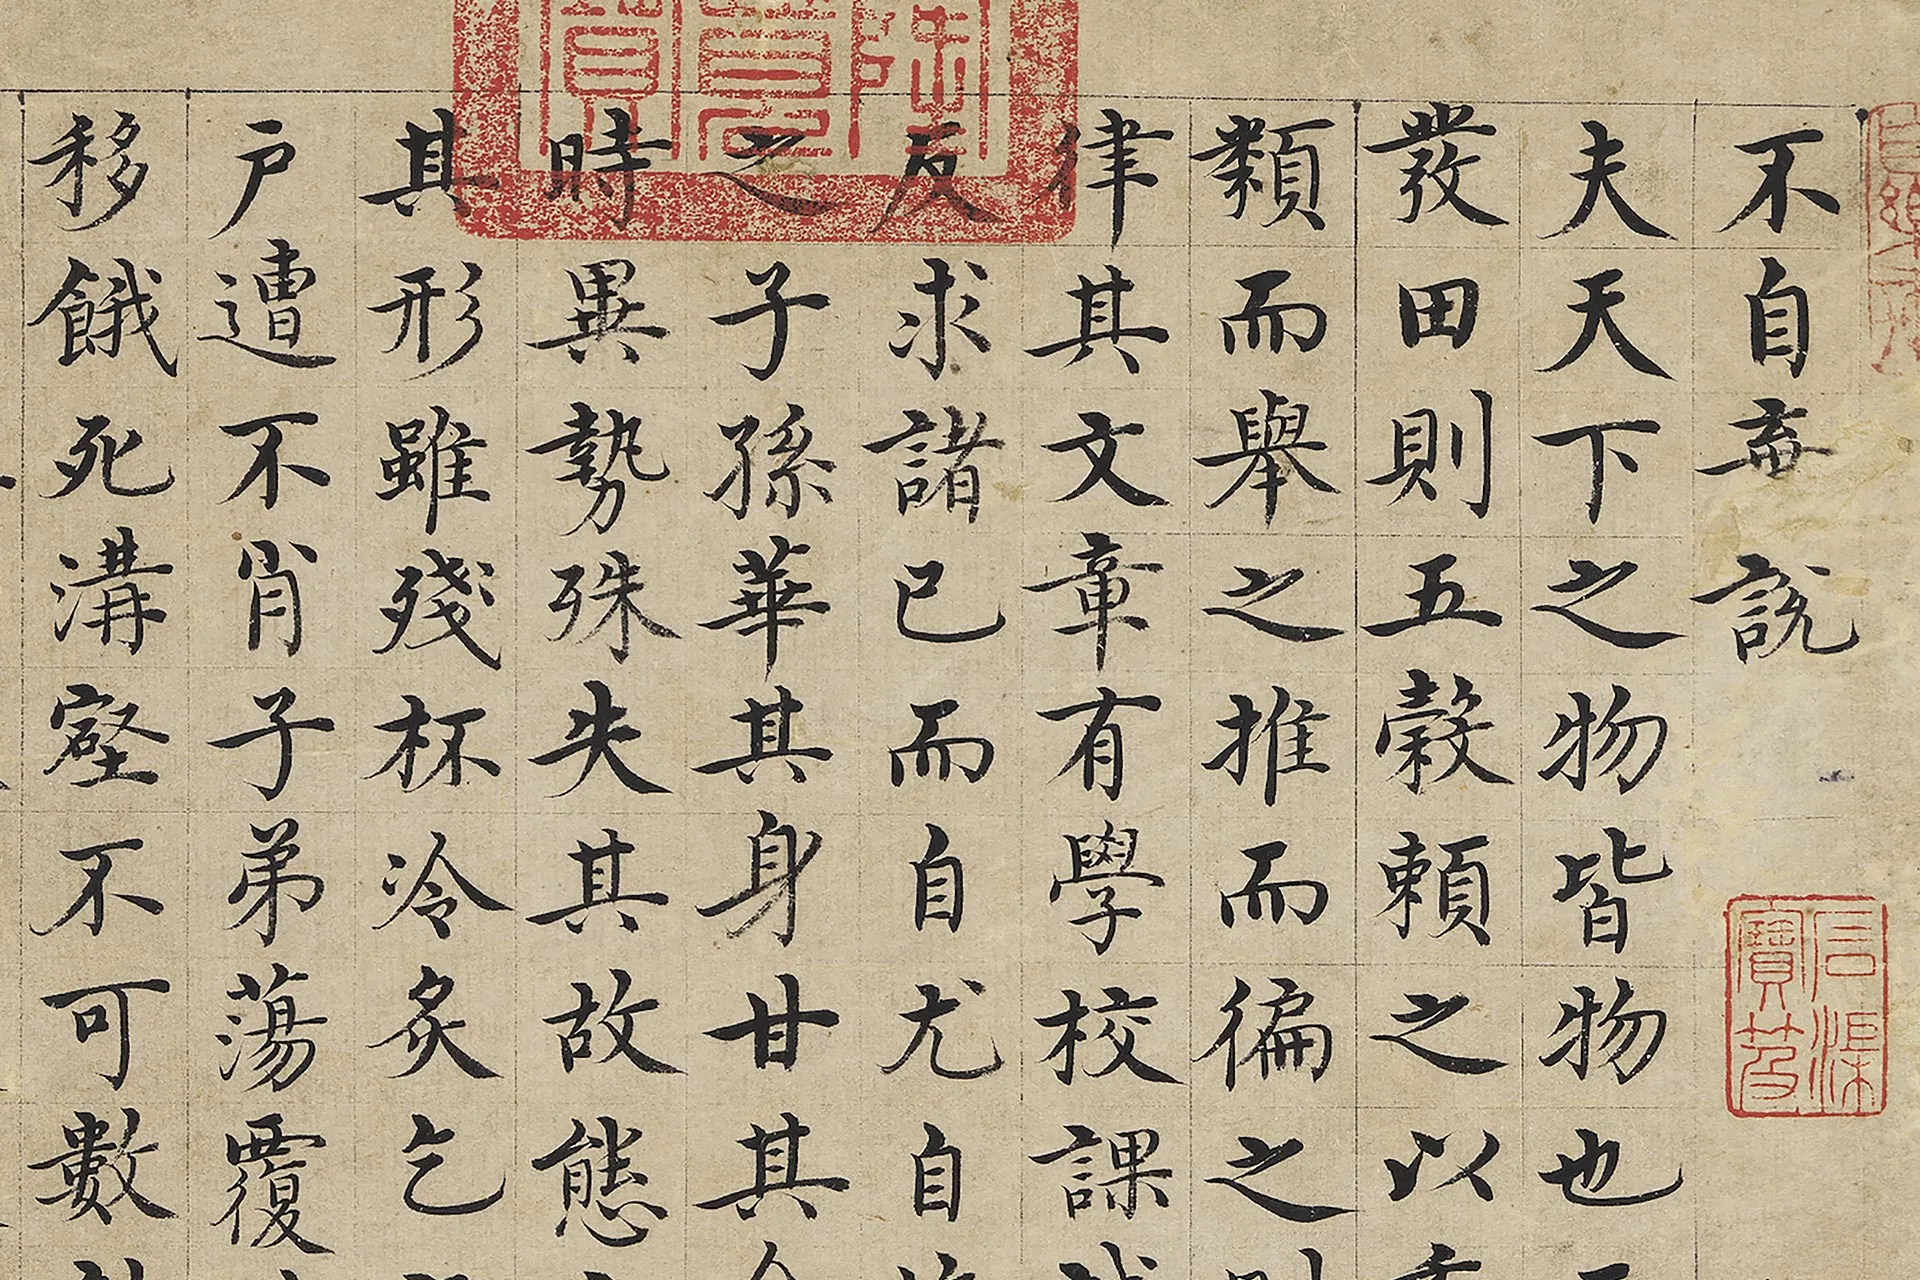 不自弃說
夫天下之物皆物也
發田則五穀賴之以
類而舉之推而徧之
律其文章有學校課
反求諸已而自尤自
之子孫華其身甘其
時異勢殊失其故態
其形雖殘杯冷炙乞
户遭不肖子弟蕩覆
移餓死溝壑不可數
石渠寶笈